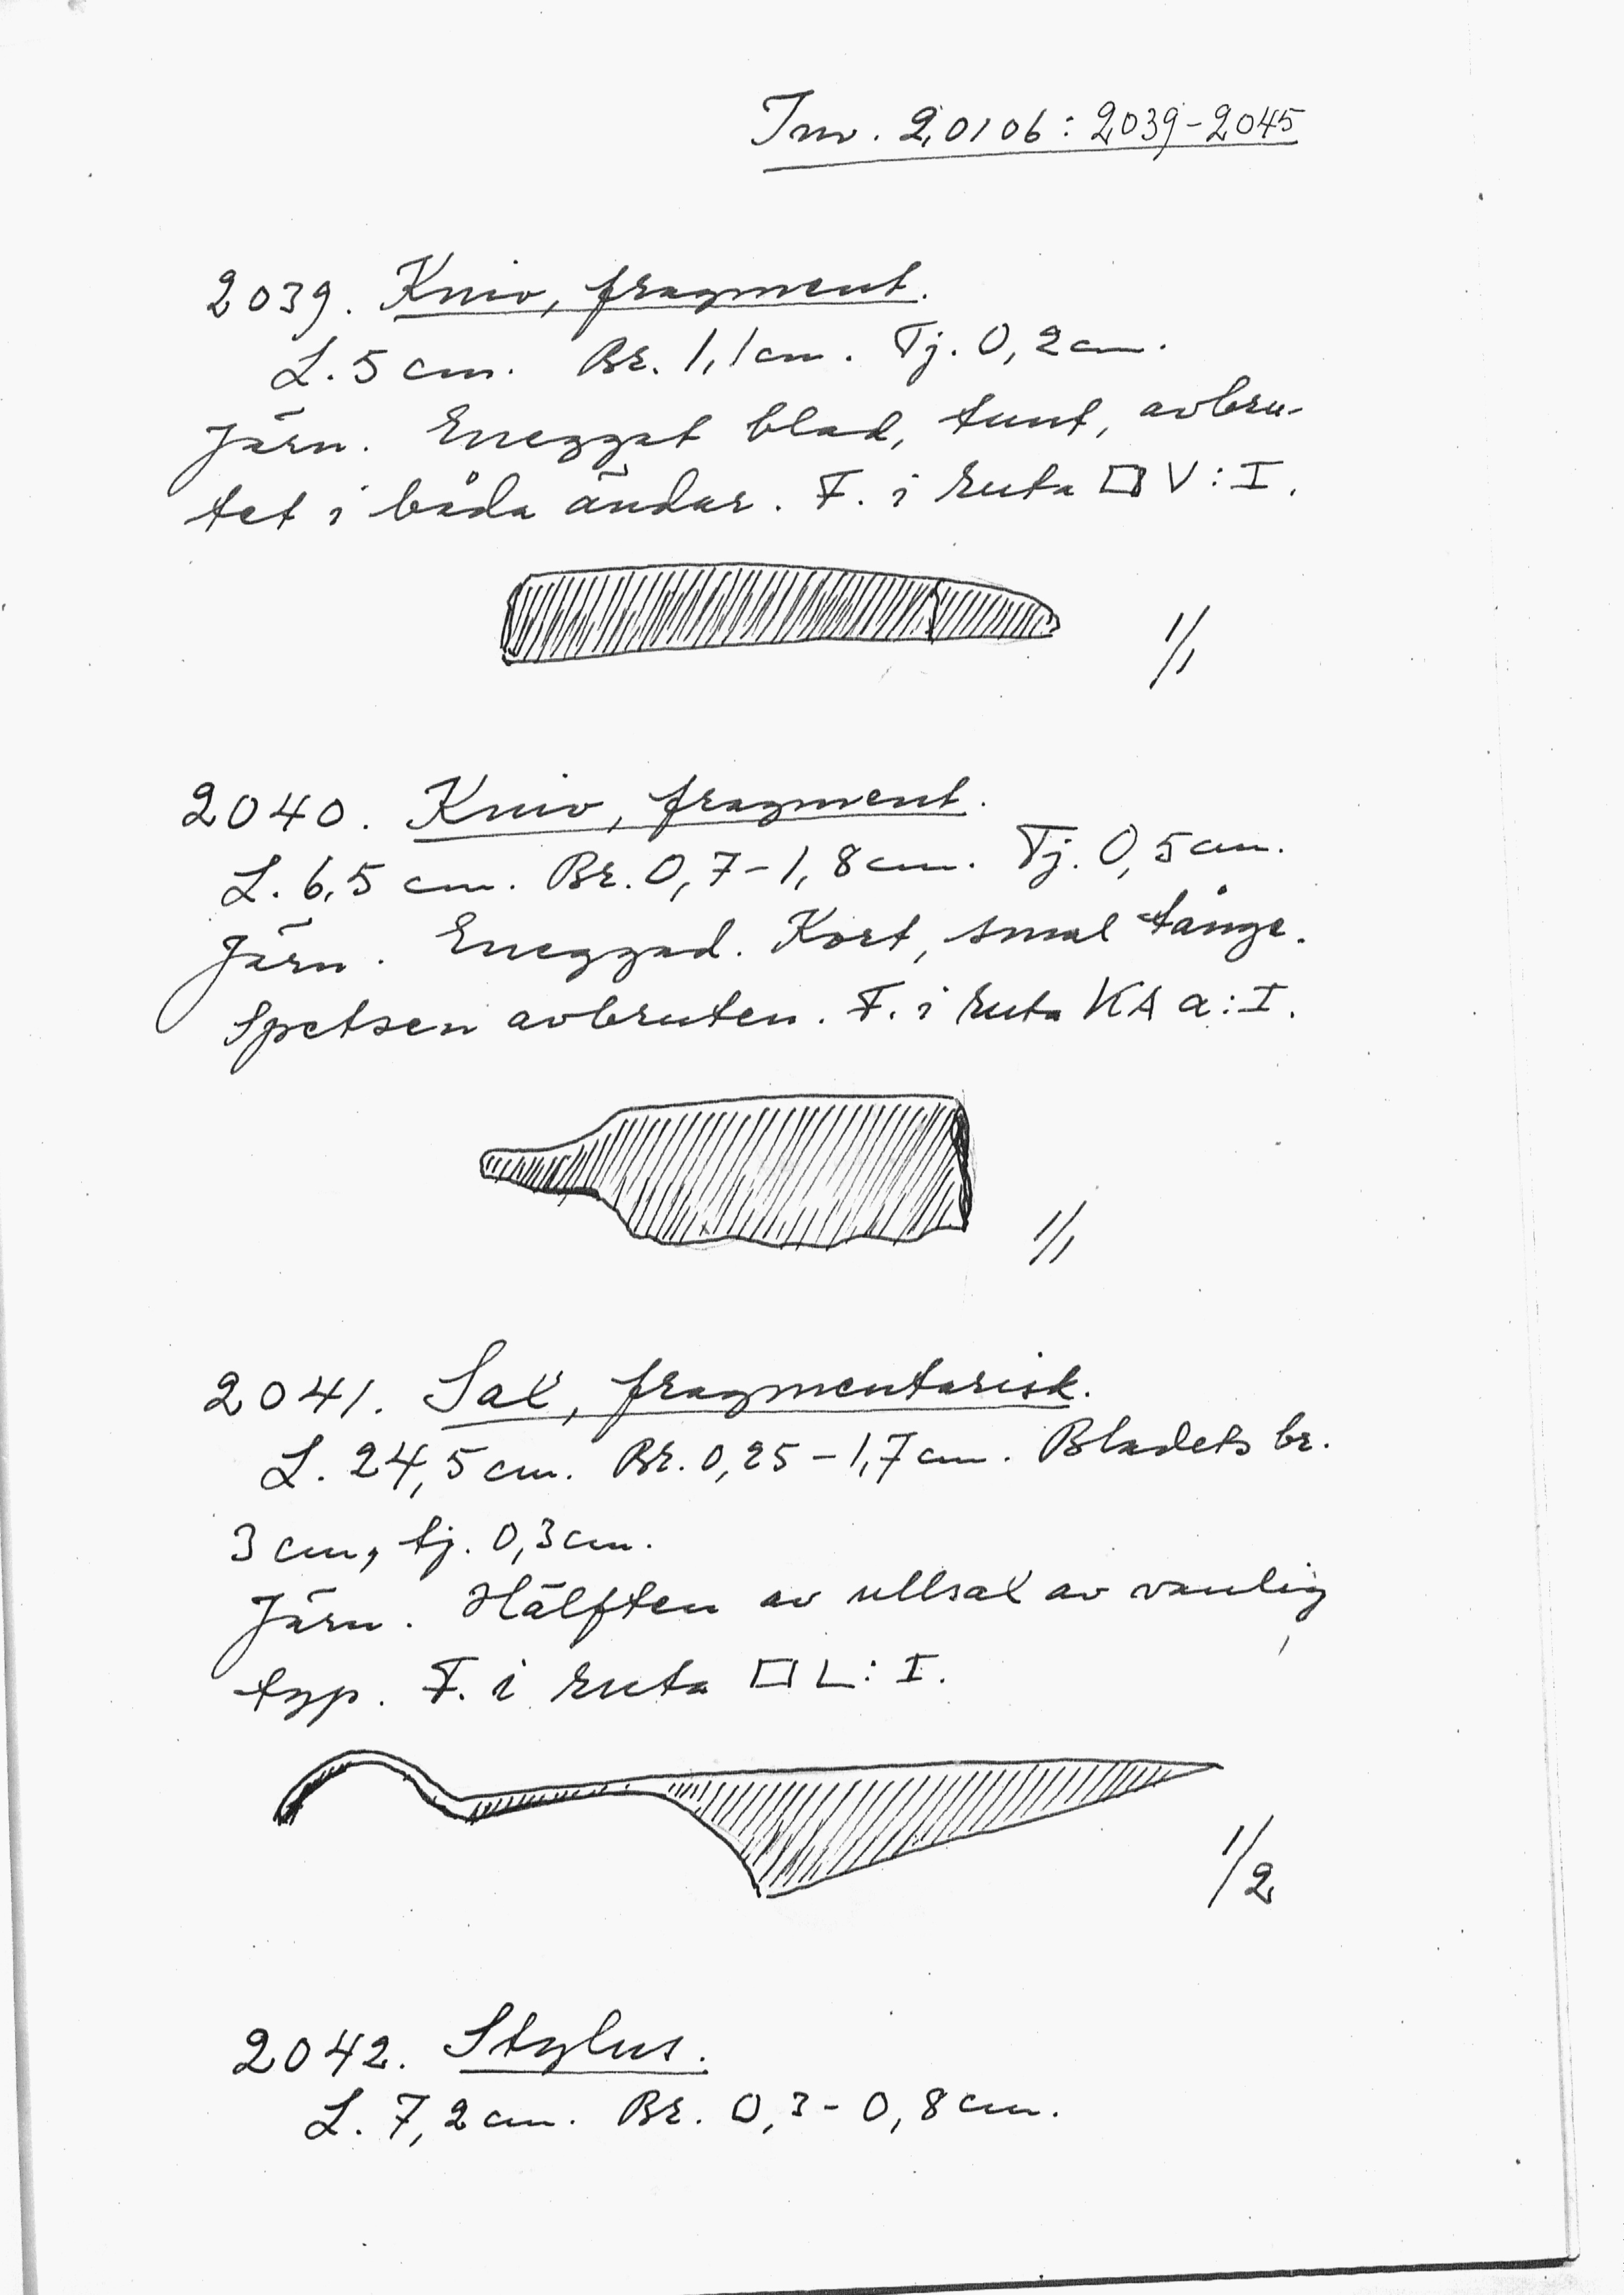 Inv. 20106: 2039-2045
2039. Kniv, fragment.
L. 5 cm. Br. 1,1 cm. Tj. 0,2 cm.
Järn. Eneggat blad, tunt, avbru-
tet i båda ändar. F. i ruta □ V: I.
1/1
2040. Kniv, fragment.
L. 6,5 cm. Br. 0,7-1,8 cm. Tj. 0,5 cm.
Järn. Eneggad. Kort, smal tånge.
Spetsen avbruten. F. i ruta KA a: I.
1/1
2041. Sax, fragmentarisk.
L. 24,5 cm. Br. 0,25-1,7 cm. Bladets br.
3 cm, tj. 0,3 cm.
Järn. Hälften av ullsax av vanlig
typ. F. i ruta □ L: I.
1/2
2042. Stylus.
L. 7,2 cm. Br. 0,3-0,8 cm.